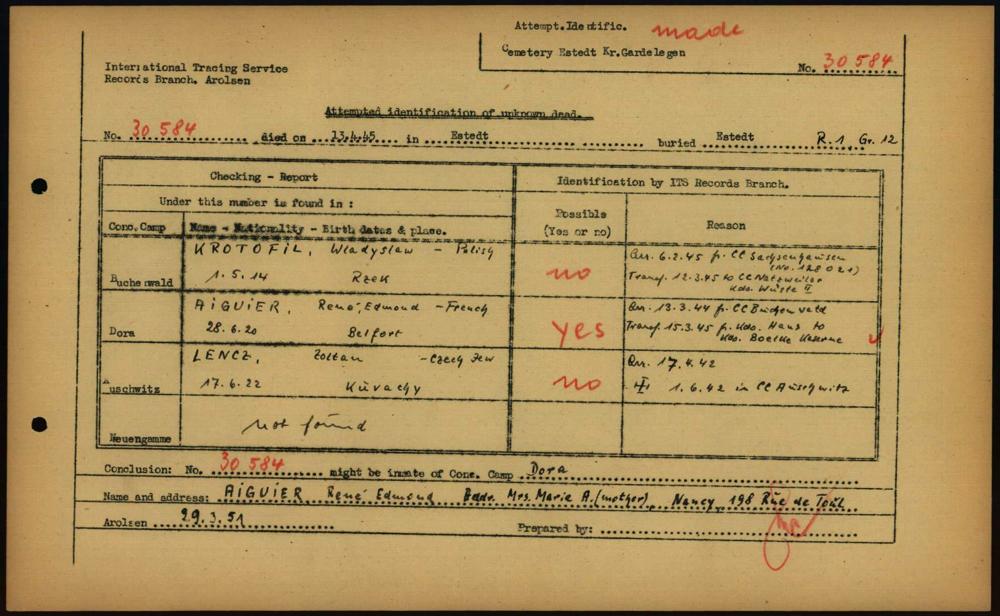 Attempt.Identific. made
Cemetery Estedt Kr.Gardelegen
No. 30 584
International Tracing Service
Records Branch, Arolsen
Attempted identification of unknown dead.
No. 30 584 died on 13.4.45 in Estedt buried Estedt R.1 Gr. 12
Checking - Report
Identification by ITS Records Branch.
Under this number is found in :
Conc.Camp
Name - Nationality - Birth dates & place.
Possible
(Yes or no)
Reason
Buchenwald
KROTOFIL, Wladyslaw - Polish
1.5.14 Rzek
no
Arr. 6.2.45 fr. CC Sachsenhausen
(No. 128021)
Transf. 12.3.45 to CC Natzweiler
Kdo. Wüste II
Dora
AIGUIER, René, Edmond - French
28.6.20 Belfort
yes
Arr. 13.3.44 fr. CC Buchenwald
Transf. 15.3.45 fr. Kdo. Hans to
Kdo. Boelke Kaserne
Auschwitz
LENCZ, Zoltan - Czech Jew
17.6.22 Kuvachy
no
Arr. 17.4.42
1.6.42 in CC Auschwitz
Neuengamme
not found
Conclusion: No. 30 584 might be inmate of Conc. Camp Dora
Name and address: AIGUIER René, Edmond Addr. Mrs. Marie A. (mother), Nancy, 198 Rue de Toul
Arolsen 29.3.51
Prepared by: